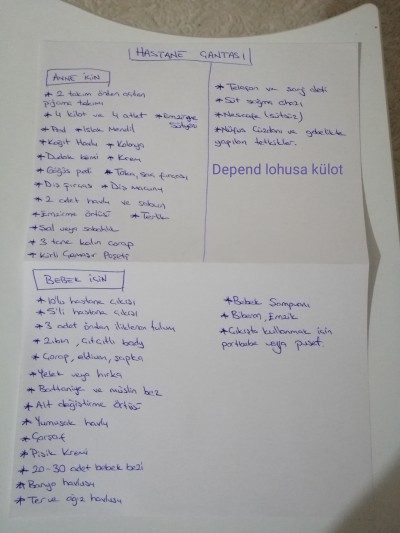 HASTANE ÇANTASI
ANNE İÇİN
* 2 takım önden açılan
pijama takımı
* 4 külot ve 4 atlet * Emzirme
Sütyeni
* Ped * Islak Mendil
* Kağıt Havlu * Kolonya
* Dudak kremi * Krem
* Göğüs pedi * Toka, saç fırçası
* Diş fırçası * Diş macunu
* 2 adet havlu ve sabun
* Emzirme örtüsü * Terlik
* Şal veya sabahlık
* 3 tane kalın çorap
* Kirli Çamaşır Poşeti
* Telefon ve şarj aleti
* Süt sağma cihazı
* Nescafe (sütsüz)
* Nüfus Cüzdanı ve gebelikte
yapılan tetkikler.
Depend lohusa külot
BEBEK İÇİN
* 10'lu hastane çıkışı
* 5'li hastane çıkışı
* 3 adet önden iliklenen tulum
* Zıbın, Çıtçıtlı body
* Çorap, eldiven, şapka
* Yelek veya hırka
* Battaniye ve müslin bez
* Alt değiştirme örtüsü
* Yumuşak havlu
* Çarşaf
* Pişik Kremi
* 20-30 adet bebek bezi
* Banyo havlusu
* Ter ve ağız havlusu
* Bebek Şampuanı
* Biberon, Emzik
* Çıkışta kullanmak için
portbebe veya puset.